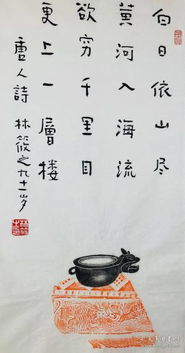 白日依山尽
黄河入海流
欲穷千里目
更上一層楼
唐人詩 林筱之九十一岁